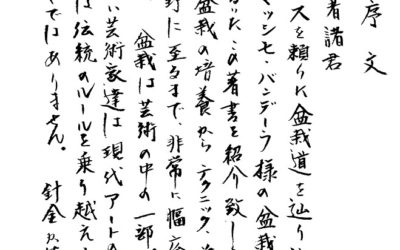 序文
者諸君
スを頼りに盆栽道を辿り
マッシモ・バンデーラ様の盆栽
この著書を紹介致し
盆栽の培養からテクニック、
に至るまで、非常に幅
盆栽は芸術の中の一部
い芸術家達は現代アートの
は伝統のルールを乗り越え
ではありません。
針金